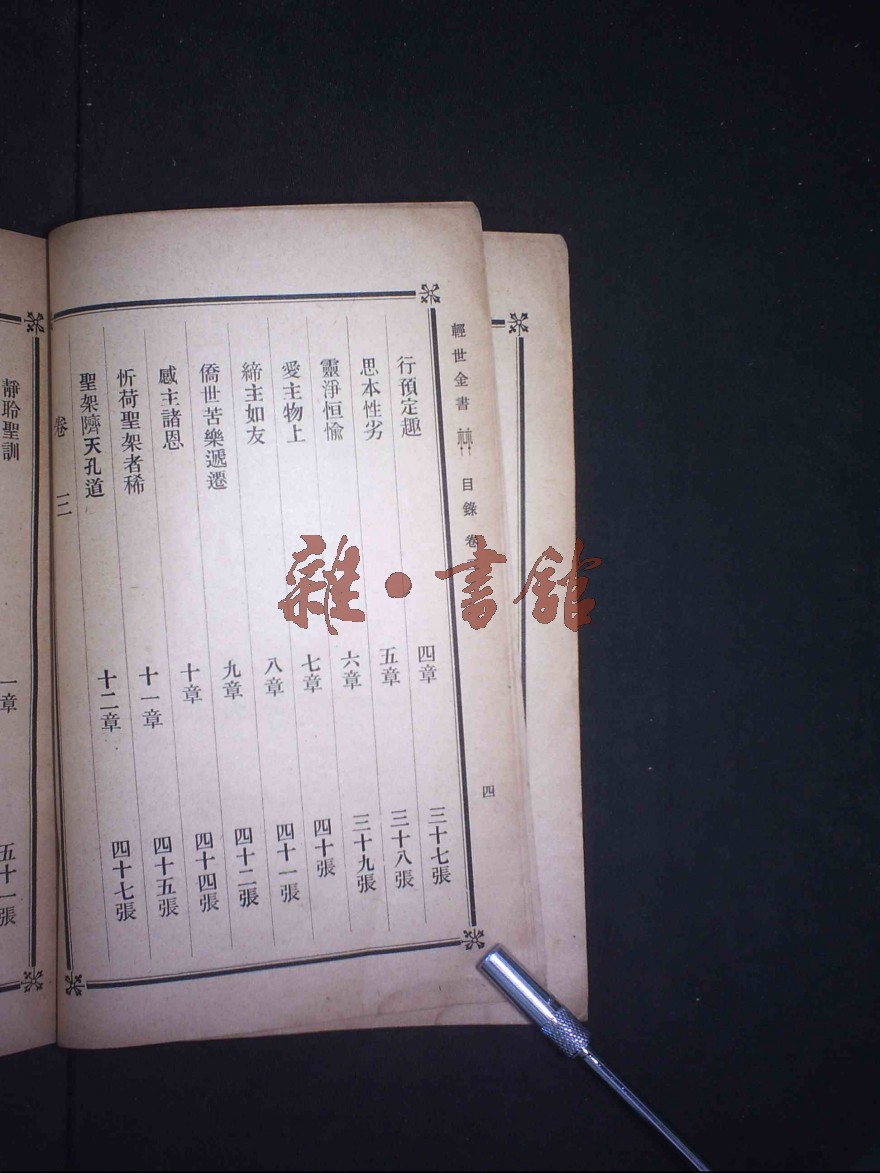 輕世金書 目錄 卷
四
行預定趣 四章 三十七張
思本性劣 五章 三十八張
靈淨恒愉 六章 三十九張
愛主物上 七章 四十張
締主如友 八章 四十一張
僑世苦樂遞遷 九章 四十二張
感主諸恩 十章 四十四張
忻荷聖架者稀 十一章 四十五張
聖架隮天孔道 十二章 四十七張
卷三
靜聆聖訓 一章 五十一張
雜·書館